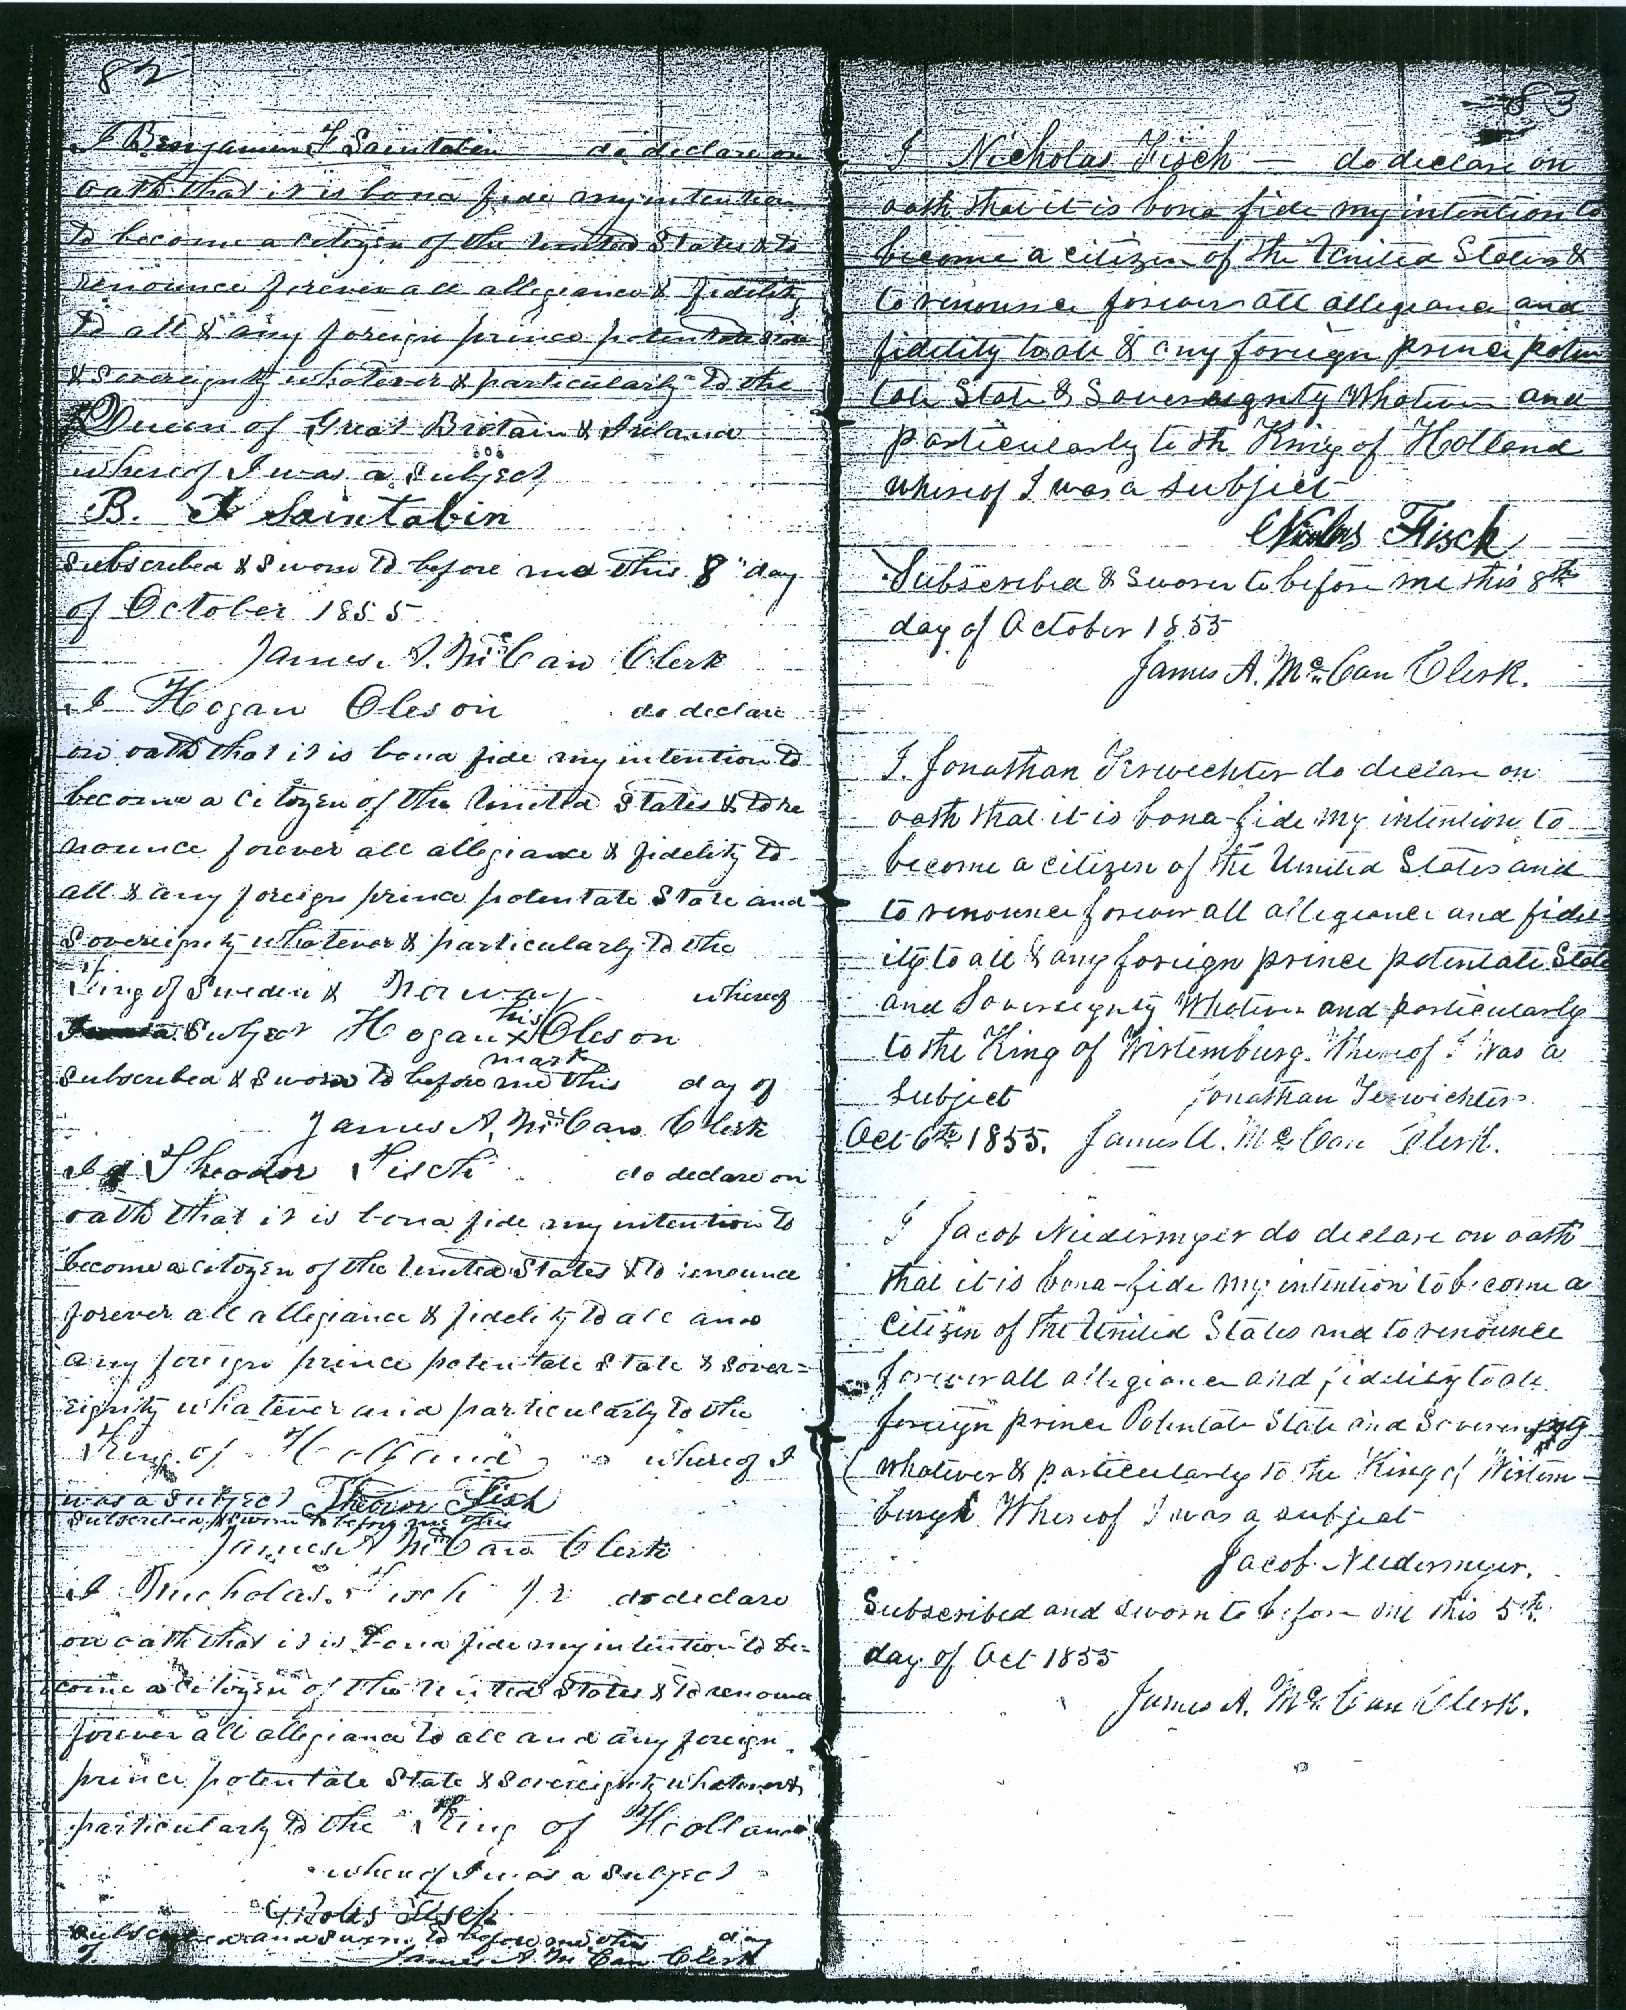 82
I Benjamin F Saintabin do declare on
oath that it is bona fide my intention
to become a citizen of the United States & to
renounce forever all allegiance & fidelity
to all & any foreign prince potentate State
& Sovereignty whatever & particularly to the
Queen of Great Britain & Ireland
whereof I was a Subject
B. F Saintabin
Subscribed & Sworn to before me this 8" day
of October 1855
James A. McCan Clerk
I Hogan Oleson do declare
on oath that it is bona fide my intention to
become a citizen of the United States & to re
nounce forever all allegiance & fidelity to
all & any foreign prince potentate State and
Sovereignty whatever & particularly to the
King of Sweden & Norway whereof
Subject Hogan his x mark Oleson
Subscribed & Sworn to before me this day of
James A. McCan Clerk
I Theodor Fisch do declare on
oath that it is bona fide my intention to
become a citizen of the United States & to renounce
forever all allegiance & fidelity to all and
any foreign prince potentate State & Sover=
eignty whatever and particularly to the
King of Holland whereof I
was a Subject Theodor Fisch
Subscribed & Sworn to before me this
James A McCan Clerk
I Nicholas Fisch Jr do declare
on oath that it is bona fide my intention to be=
come a Citizen of the United States & to renounce
forever all allegiance to all and any foreign
prince potentate State & Sovereignty whatever &
particularly to the King of Holland
whereof I was a Subject
Fisch
Subscribed and Sworn to before me this day
of James A. McCan Clerk
83
I Nicholas Fisch — do declare on
oath that it is bona fide my intention to
become a citizen of the United States &
to renounce forever all allegiance and
fidelity to all & any foreign prince poten
tate State & Sovereignty Whatever and
particularly to th King of Holland
whereof I was a subject
Nicolas Fisch
Subscribed & Sworn to before me this 8th
day of October 1855
James A. McCan Clerk.
I. Jonathan Terwichter do declare on
oath that it is bona-fide my intention to
become a citizen of the United States and
to renounce forever all allegiance and fidel
ity to all & any foreign prince potentate State
and Sovereignty Whatever and particularly
to the King of Wirtemburg. Whereof I was a
Subject Jonathan Terwichter
Oct 6th 1855. James A. McCan Clerk.
I Jacob Niedermyer do declare on oath
that it is bona-fide my intention to become a
Citizen of the United States and to renounce
forever all allegiance and fidelity to all
foreign prince Potentate State and Sovereignty
whatever & particularly to the King of Wirtem-
burgh Whereof I was a subject
Jacob Niedermyer.
Subscribed and sworn to before me this 5th
day of Oct 1855
James A. McCan Clerk.